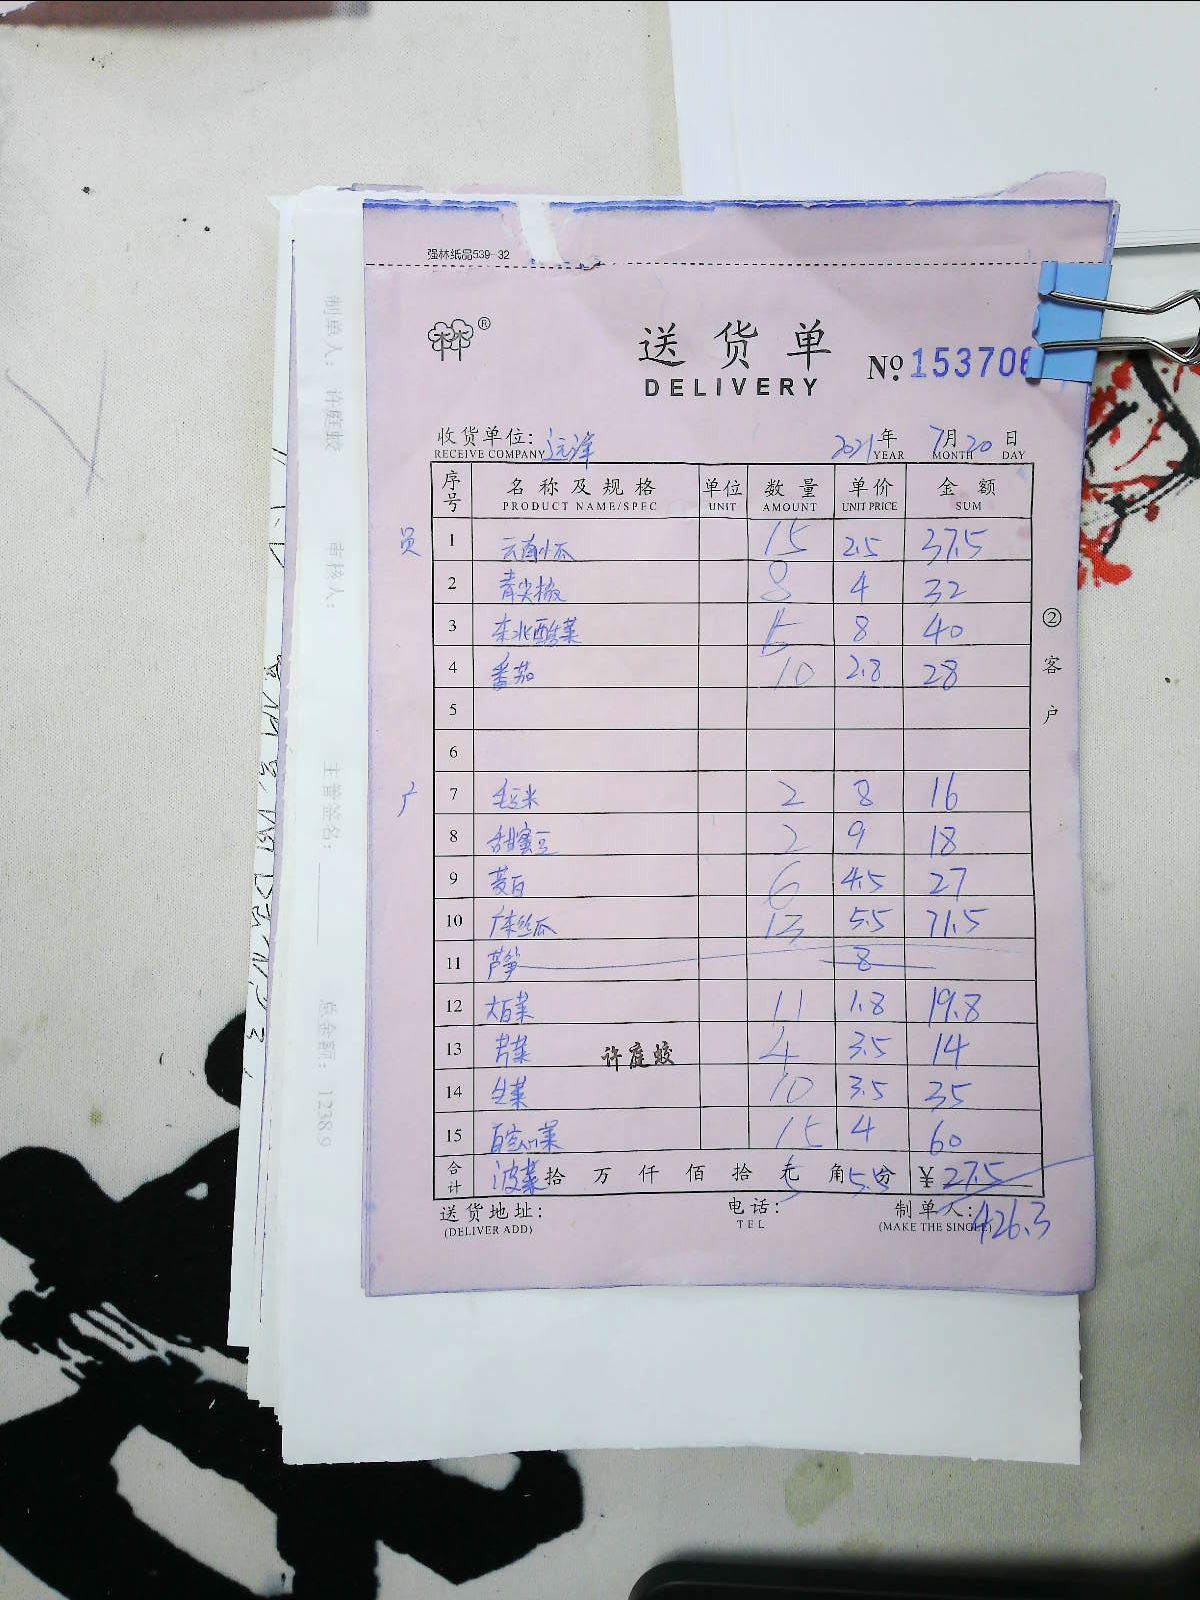 强林纸品539-32
®
送货单
DELIVERY
No. 153706
收货单位: 远洋 2021年 7月20日
RECEIVE COMPANY YEAR MONTH DAY
序号 名称及规格 单位 数量 单价 金额
PRODUCT NAME/SPEC UNIT AMOUNT UNIT PRICE SUM
员 1 云南小瓜 15 2.5 37.5
2 青尖椒 8 4 32
3 东北酸菜 5 8 40
4 番茄 10 2.8 28
5
6
广 7 毛豆米 2 8 16
8 甜蜜豆 2 9 18
9 茭白 6 4.5 27
10 广东丝瓜 13 5.5 71.5
11 芦笋 8
12 大白菜 11 1.8 19.8
13 芹菜 许庭蛟 4 3.5 14
14 生菜 10 3.5 35
15 白空心菜 15 4 60
合计 波菜 拾 万 仟 佰 拾 元 5 角 5.5 分 ¥ 27.5
送货地址: 电话: 制单人: 426.3
(DELIVER ADD) TEL (MAKE THE SINGLE)
②客户
制单人: 许庭蛟 审核人: 主管签名: 总金额: 12389